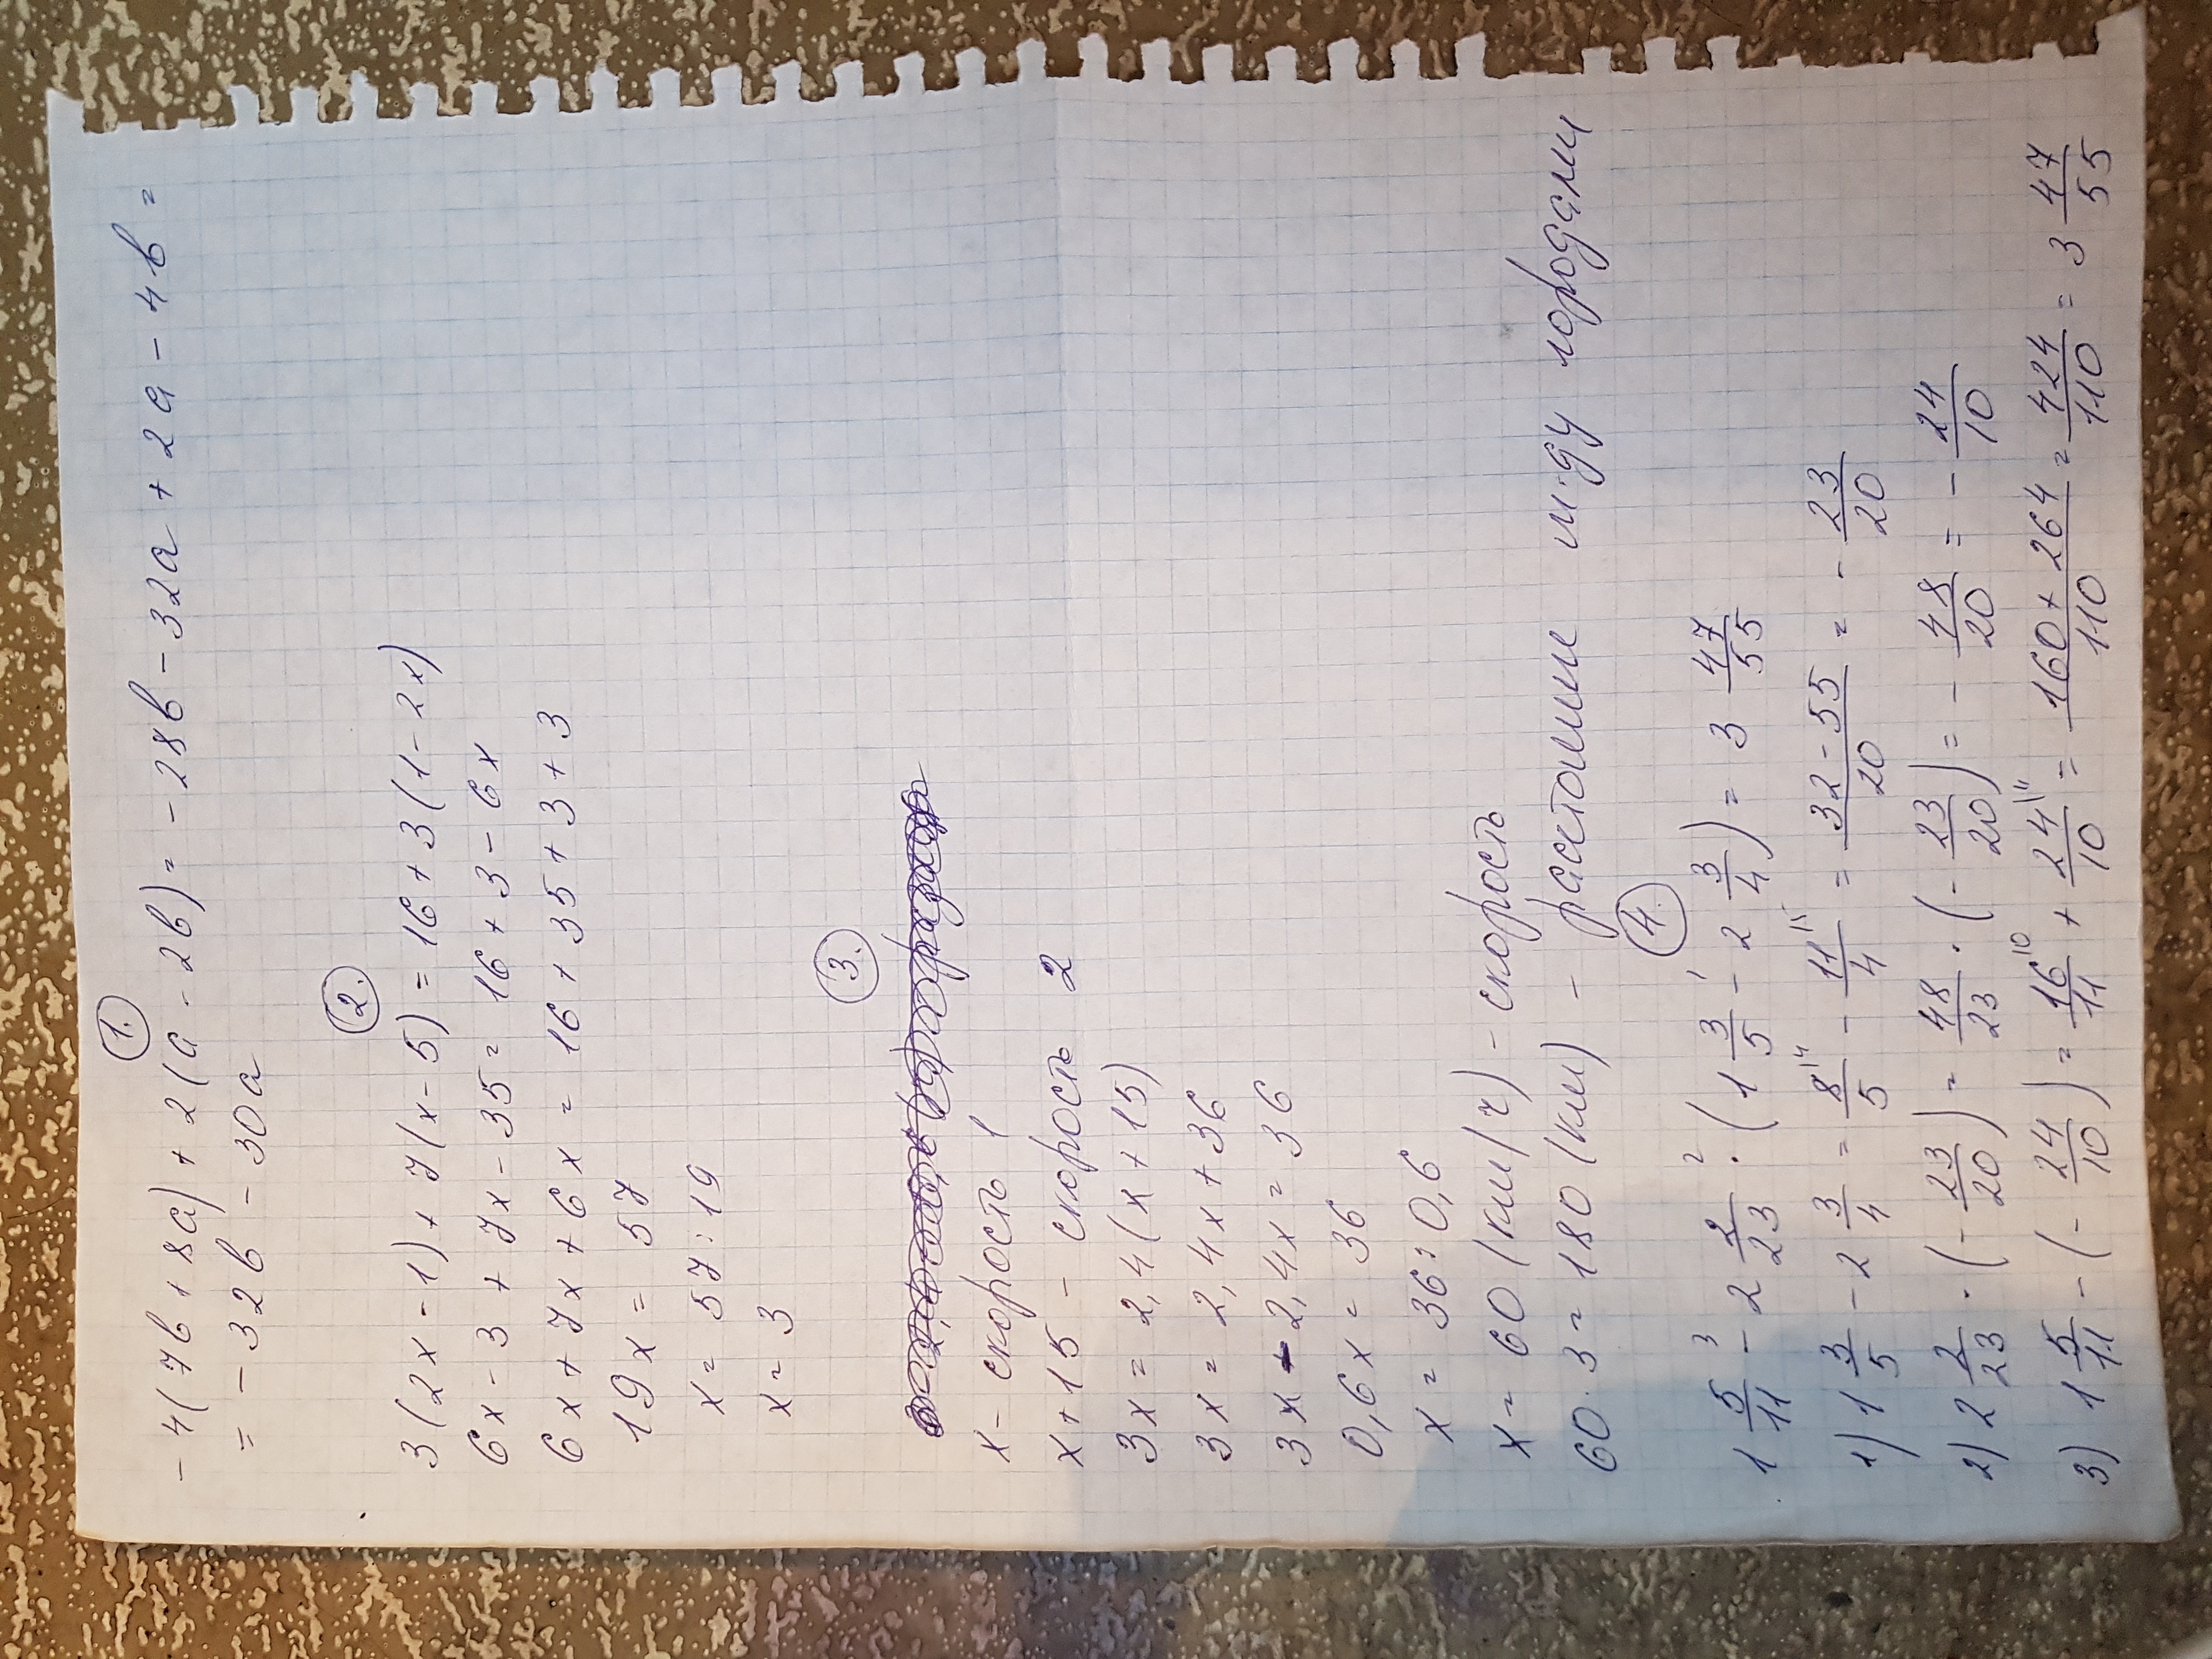 1.
-4(7в+8а)+2(а-2в)=-28в-32а+2а-4в=
=-32в-30а
2.
3(2х-1)+7(х-5)=16+3(1-2х)
6х-3+7х-35=16+3-6х
6х+7х+6х=16+35+3+3
19х=57
х=57:19
х=3
3.
х-скорость 1
х+15-скорость 2
3х=2,4(х+15)
3х=2,4х+36
3х-2,4х=36
0,6х=36
х=36:0,6
х=60(км/ч)-скорость
60·3=180(км)-растояние м-ду городами
4.
1 5/11 -³ 2 2/23 ·² (1 3/5 -¹ 2 3/4)=3 47/55
1) 1 3/5 - 2 3/4 = 8/5 \4 - 11/4 \5 = (32-55)/20 = -23/20
2) 2 2/23 · (-23/20) = 48/23 · (-23/20) = -48/20 = -24/10
3) 1 5/11 - (-24/10) = 16/11 \10 + 24/10 \11 = (160+264)/110 = 424/110 = 3 47/55